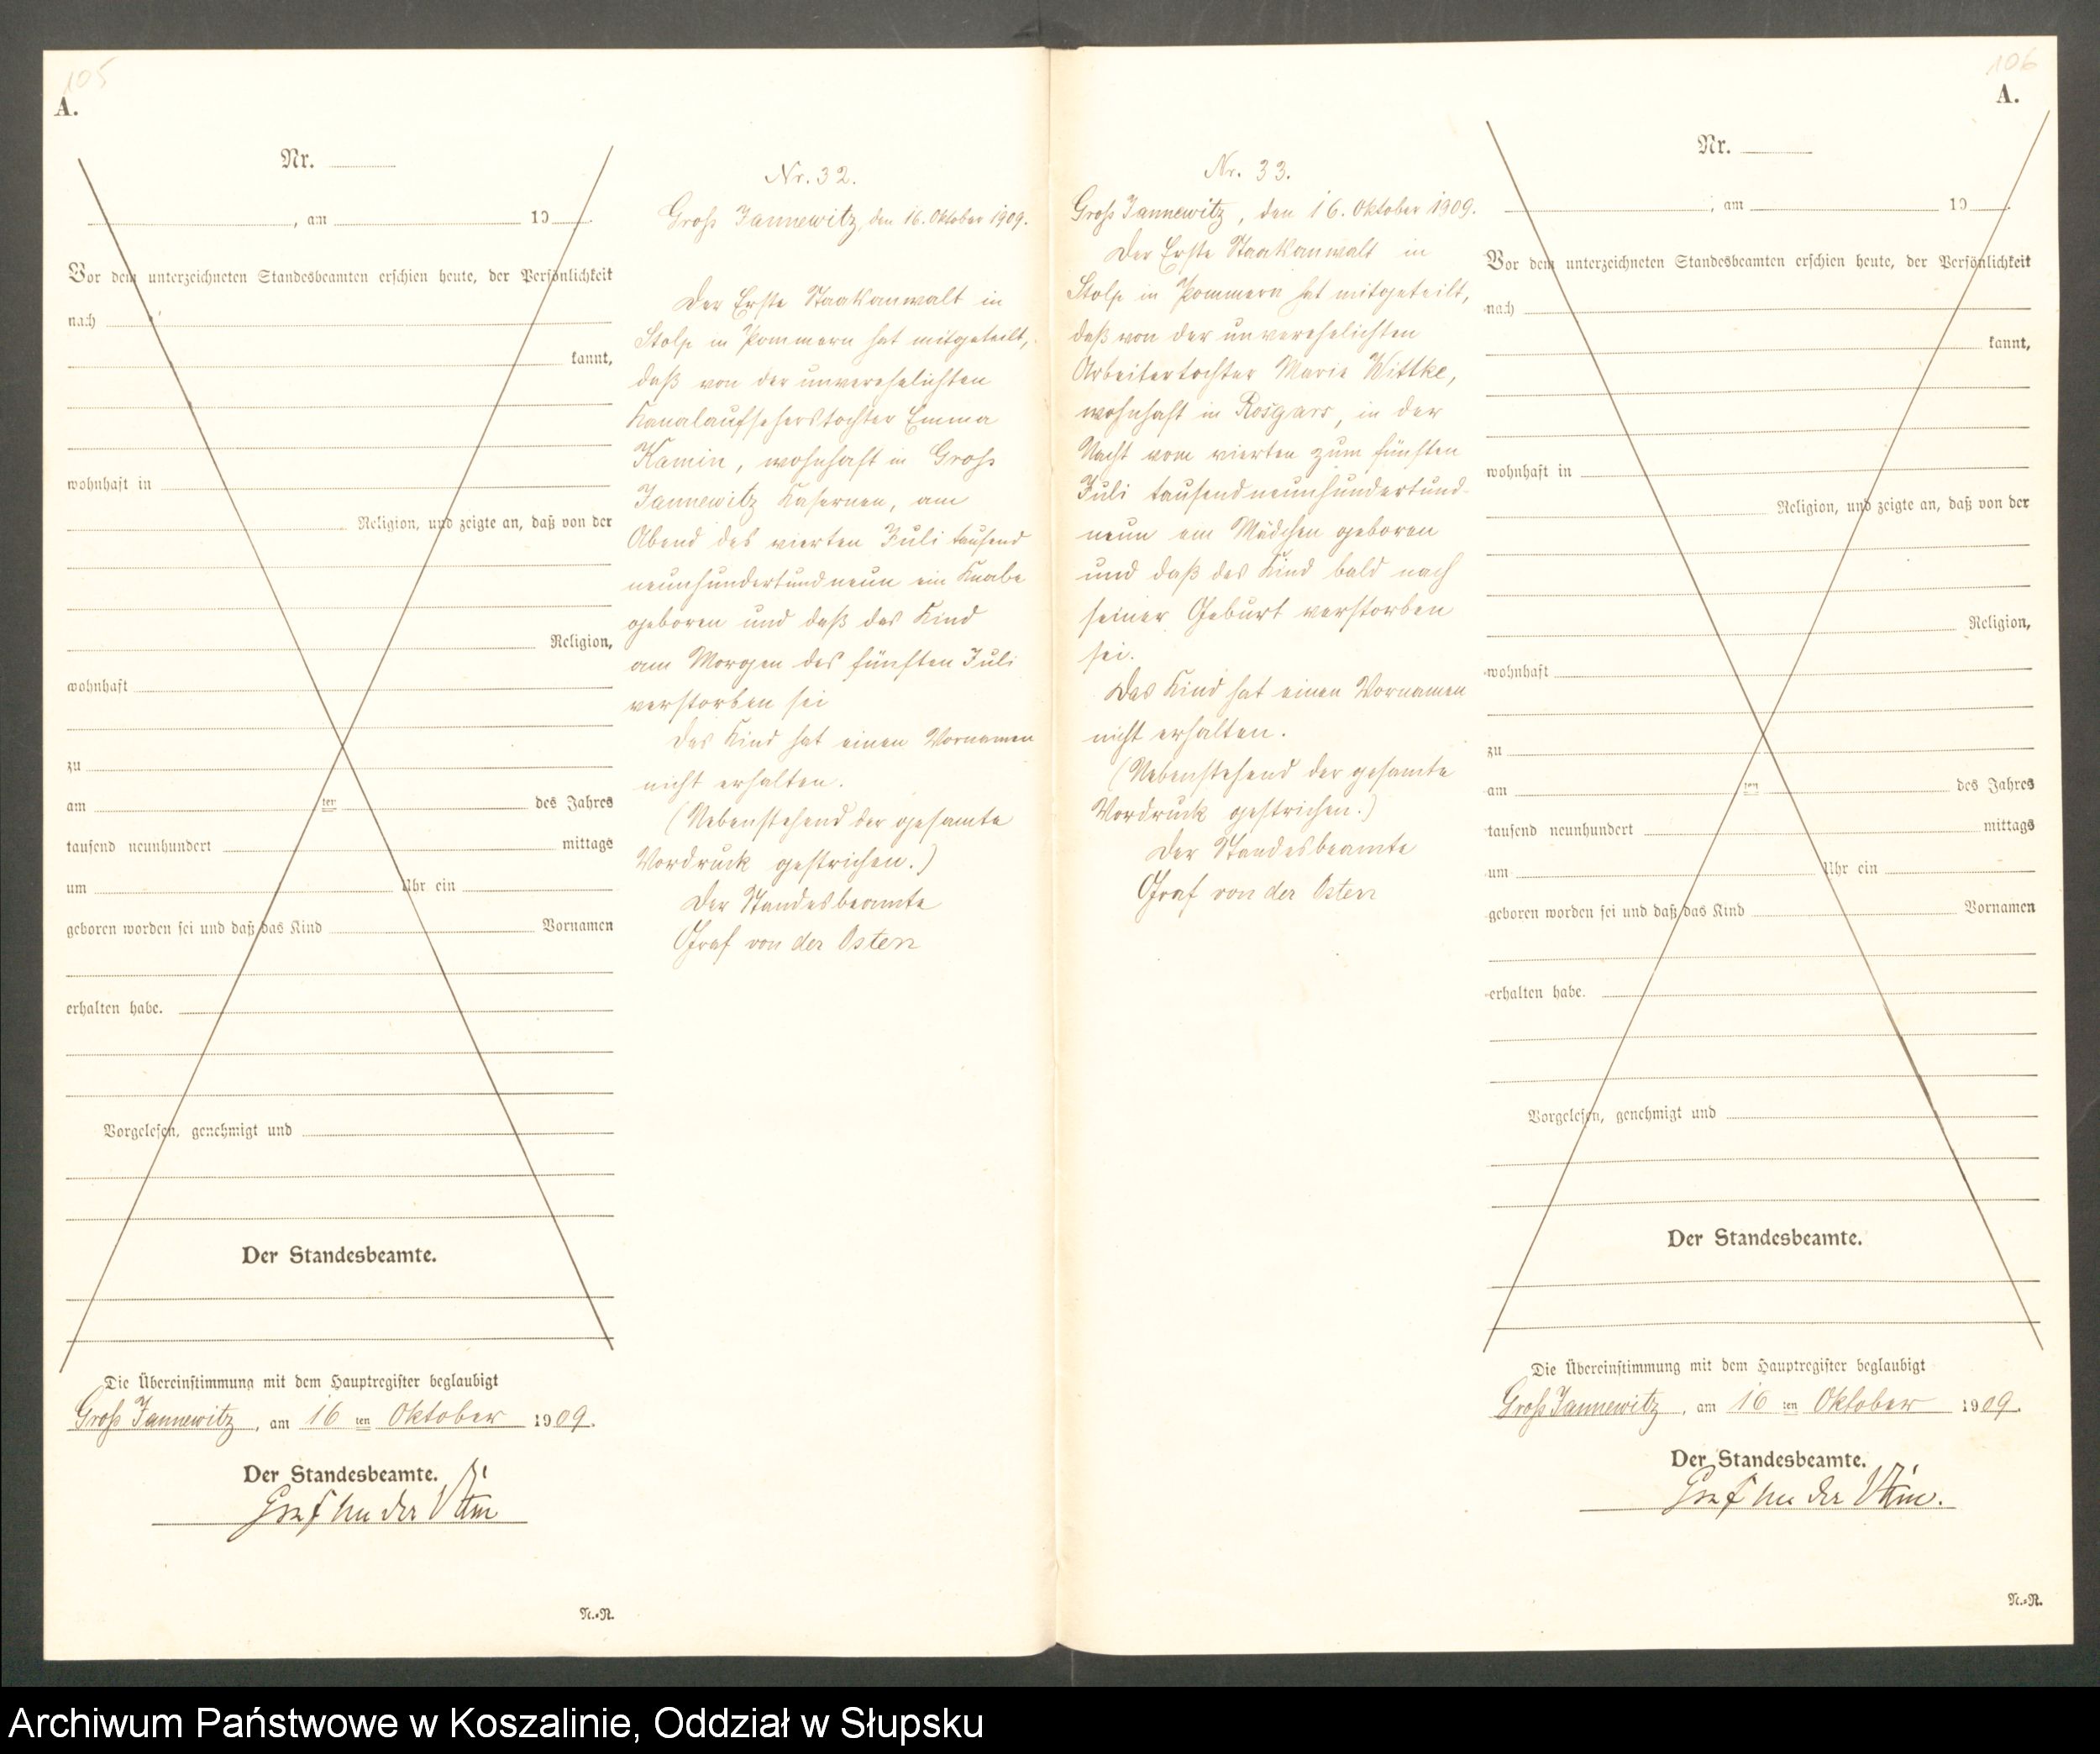 105
A.
Nr.
, am 19
Vor dem unterzeichneten Standesbeamten erschien heute, der Persönlichkeit
nach
kannt,
wohnhaft in
Religion, und zeigte an, daß von der
Religion,
wohnhaft
zu
am ten des Jahres
tausend neunhundert mittags
um Uhr ein
geboren worden sei und daß das Kind Vornamen
erhalten habe.
Vorgelesen, genehmigt und
Der Standesbeamte.
Die Übereinstimmung mit dem Hauptregister beglaubigt
Groß Jannewitz, am 16 ten Oktober 1909.
Der Standesbeamte.
Graf von der Osten
N.-R.
Nr. 32.
Groß Jannewitz, den 16. Oktober 1909.
Der Erste Staatsanwalt in
Stolp in Pommern hat mitgeteilt,
daß von der unverehelichten
Kanalaufseherstochter Emma
Kamin, wohnhaft in Groß
Jannewitz Kasernen, am
Abend des vierten Juli tausend
neunhundertundneun ein Knabe
geboren und daß das Kind
am Morgen des fünften Juli
verstorben sei
Das Kind hat einen Vornamen
nicht erhalten.
(Nebenstehend der gesamte
Vordruck gestrichen.)
Der Standesbeamte
Graf von der Osten
Nr. 33.
Groß Jannewitz, den 16. Oktober 1909.
Der Erste Staatsanwalt in
Stolp in Pommern hat mitgeteilt,
daß von der unverehelichten
Arbeitertochter Marie Wittke,
wohnhaft in Rosgars, in der
Nacht vom vierten zum fünften
Juli tausendneunhundertund-
neun ein Mädchen geboren
und daß das Kind bald nach
seiner Geburt verstorben
sei.
Das Kind hat einen Vornamen
nicht erhalten.
(Nebenstehend der gesamte
Vordruck gestrichen.)
Der Standesbeamte
Graf von der Osten
106
A.
Nr.
, am 19
Vor dem unterzeichneten Standesbeamten erschien heute, der Persönlichkeit
nach
kannt,
wohnhaft in
Religion, und zeigte an, daß von der
Religion,
wohnhaft
zu
am ten des Jahres
tausend neunhundert mittags
um Uhr ein
geboren worden sei und daß das Kind Vornamen
erhalten habe.
Vorgelesen, genehmigt und
Der Standesbeamte.
Die Übereinstimmung mit dem Hauptregister beglaubigt
Groß Jannewitz, am 16 ten Oktober 1909.
Der Standesbeamte.
Graf von der Osten.
N.-R.
Archiwum Państwowe w Koszalinie, Oddział w Słupsku